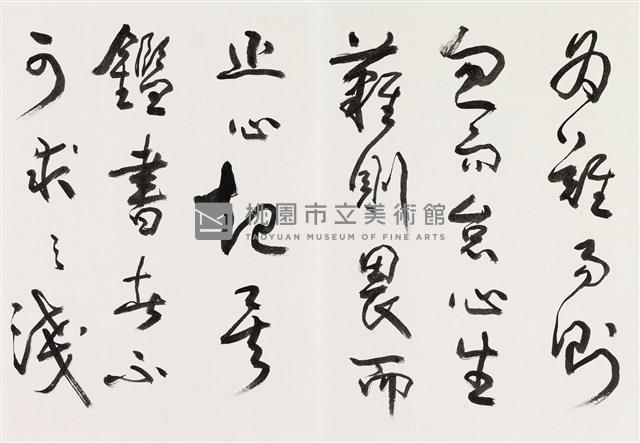 為難易則
忽而怠心生
難則畏而
止心起矣
鑑書者不
可求之淺
桃園市立美術館
TAOYUAN MUSEUM OF FINE ARTS